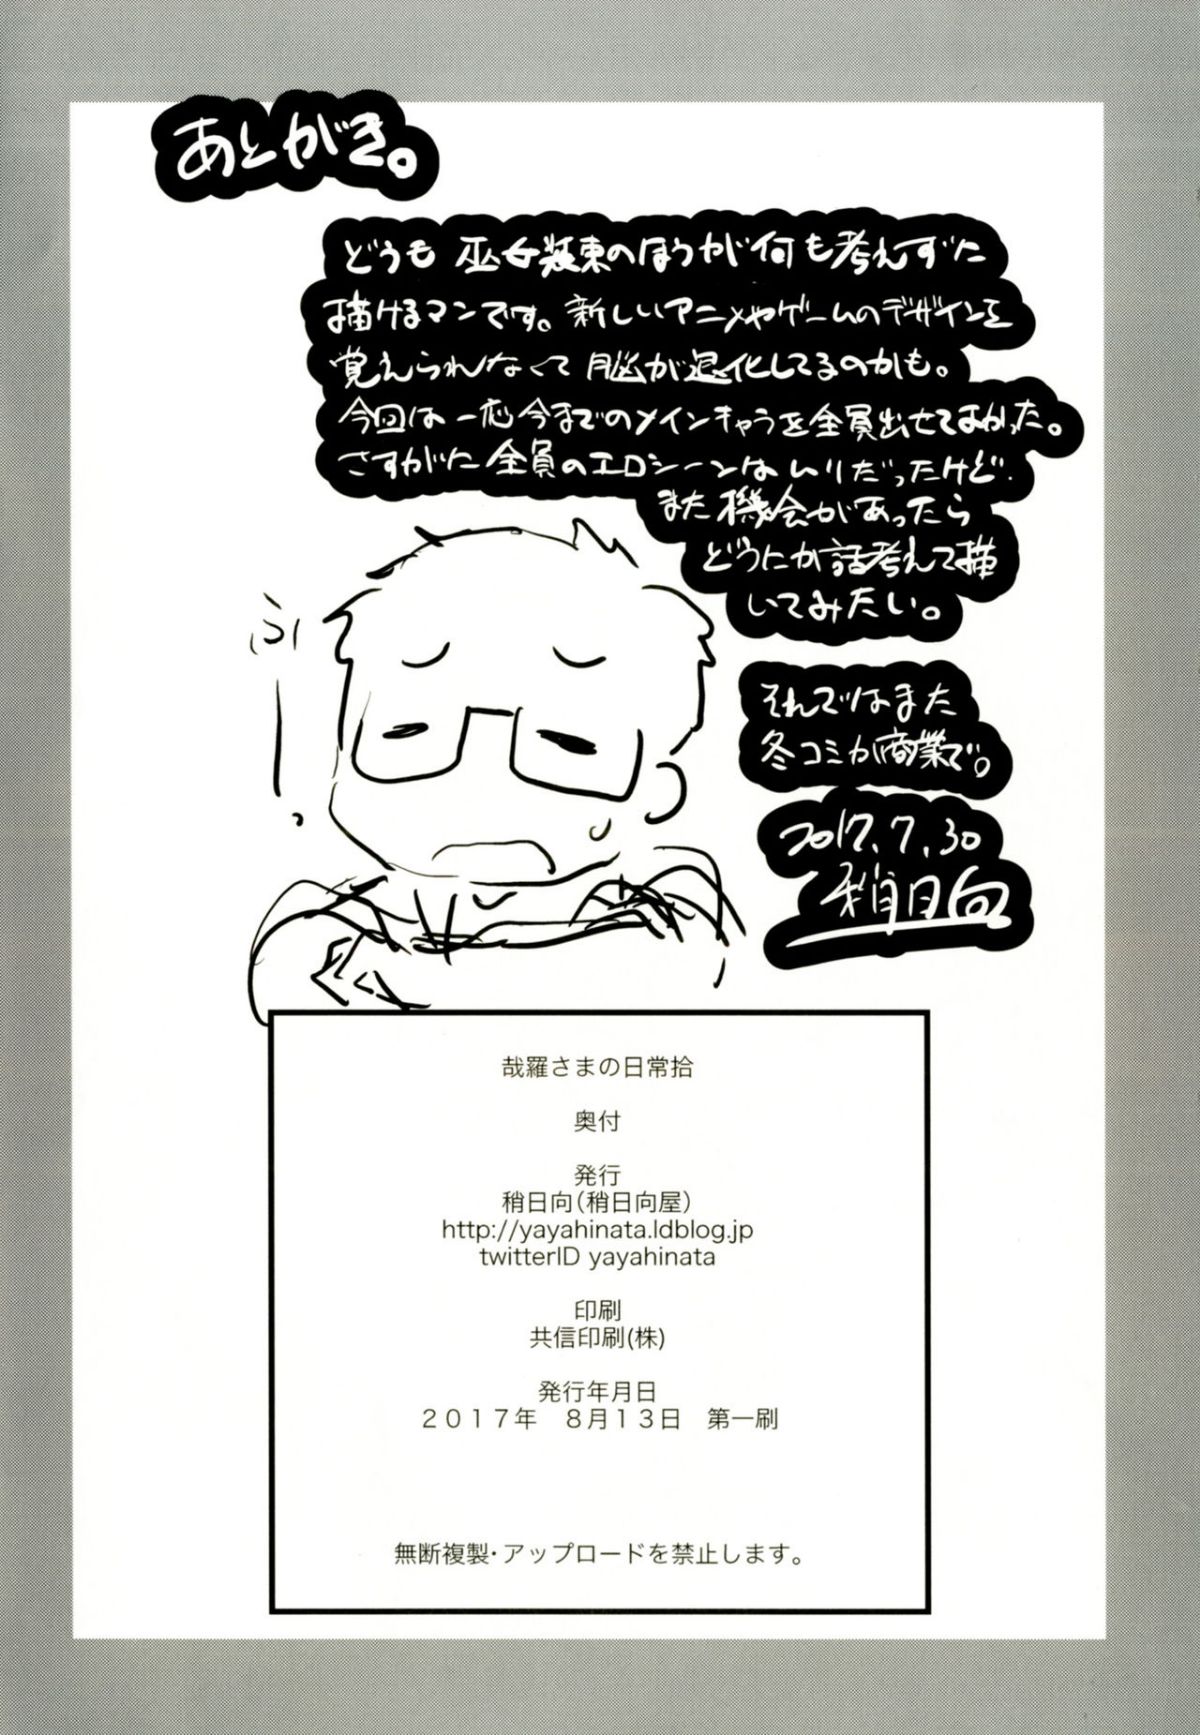 あとがき。
どうも 巫女装束のほうが何も考えずに
描けるマンです。新しいアニメやゲームのデザインを
覚えられなくて 脳が退化してるのかも。
今回は一応今までのメインキャラを全員出せてよかった。
さすがに全員のエロシーンはムリだったけど.
また機会があったら
どうにか話考えて描
いてみたい。
ふぅ
それではまた
冬コミか商業で。
2017.7.30
稍日向
哉羅さまの日常拾
奥付
発行
稍日向(稍日向屋)
http://yayahinata.ldblog.jp
twitterID yayahinata
印刷
共信印刷(株)
発行年月日
2017年 8月13日 第一刷
無断複製・アップロードを禁止します。